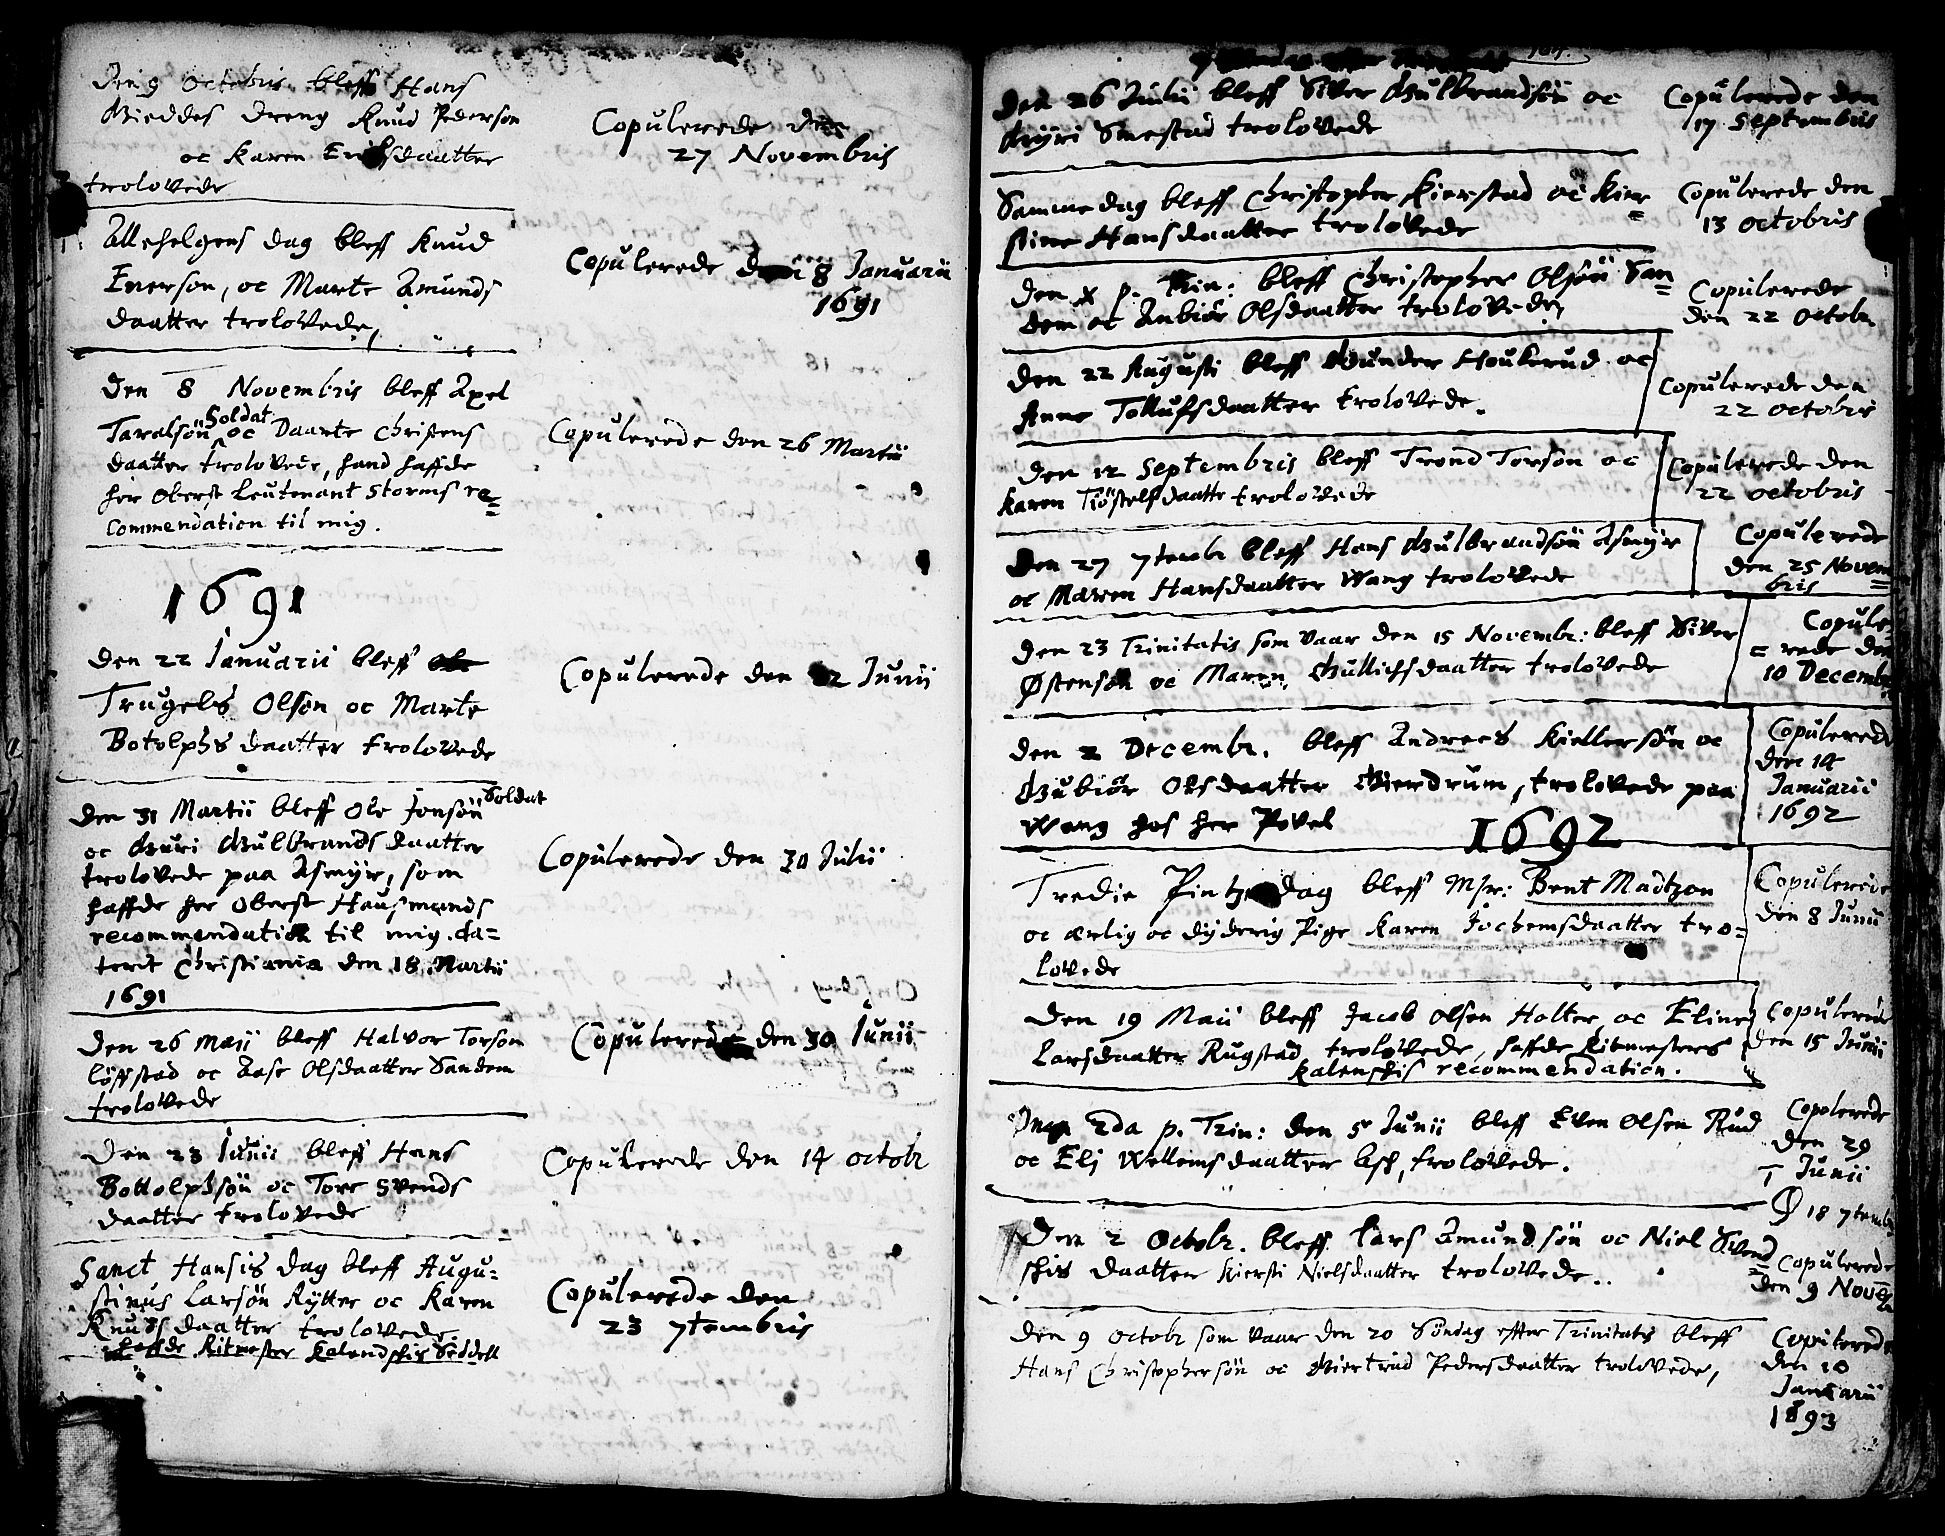 Den 9 Octobris bleff Hans
Gieddes Dreng Knud Pederson
oc Karen Erichsdaatter
trolovede
Copulerede den
27 Novembris
Allehelgens dag bleff Knud
Everson, oc Marte Amunds
daatter trolovede,
Copulerede den 8 Januarii
1691
Den 8 Novembris bleff Axel
Taralsön Soldat oc Daarte Christens
daatter trolovede, hand haffde
her Oberst Leutenant Storms re=
commendation til mig.
Copulerede den 26 Martii
1691
Den 22 Januarii bleff
Trugels Olson oc Marte
Botolphs daatter trolovede
Copulerede den 2 Junii
Den 31 Martii bleff Ole Jonsön Soldat
oc Guri Gulbrands daatter
trolovede paa Asmyr, som
haffde her Oberst Hausmands
recommendation til mig. da=
terit Christiania den 18 Martii
1691
Copulerede den 30 Julii
Den 26 Maii bleff Halvor Torson
löffstad oc Aase Olsdaatter Sandem
trolovede
Copulerede den 30 Junii
Den 23 Junii bleff Hans
Bottolphsön oc Tore Svends
daatter trolovede
Copulerede den 14 octobr
Sanct Hansis dag bleff Augu=
stinus Larsön Rytter oc Karen
Knudsdaatter trolovede
haffde Ritmester Kalendskis Seddell
Copulerede den
23 7tembris
Den 26 Julii bleff Siver Gulbrandsön oc
Smestad trolovede
Copulerede den
17 Septembris
Samme dag bleff Christopher Kierstad oc Kier=
stine Hansdaatter trolovede
Copulerede den
13 octobris
Den X p. Trin: bleff Christopher Olsön San=
dem oc Anbiör Olsdaatter trolovede,
Copulerede
den 22 Octobr.
Den 22 Augusti bleff Gunder Houkerud oc
Anne Tollufsdaatter trolovede.
Copulerede den
22 octobris
Den 12 Septembris bleff Trond Torson oc
Karen Tiöstelfsdaatte trolovede
Copulerede den
22 octobris
Den 27 7tembr bleff Hans Gulbrandsön Asmyr
oc Maren Hansdaatter Wang trolovede
Copulerede
den 25 Novem=
bris
Den 23 Trinitatis som vaar den 15 Novembr: bleff Siver
Østensøn oc Maren Gullichsdaatter trolovede
Copule=
rede den
10 Decembr
Den 2 Decembr. bleff Andrees Kiellersön oc
Gubiör Olsdaatter Gierdrum, trolovede paa
Wang hos her Povel
Copulerede
den 14
Januarii
1692
1692
Tredie Pintzedag bleff Msr: Bent Madtzon
oc ærlig oc dyderig Pige Karen Jochemsdaatter tro=
lovede
Copulerede
den 8 Junii
Den 19 Maii bleff Jacob Olsen Holter oc Eline
Larsdaatter Rugstad trolovede, haffde Ritmesters
Kalenskis recommendation.
Copulerede
den 15 Junii
2da p. Trin: den 5 Junii bleff Even Olsen Rud
oc Eli Wellemsdaatter Ask, trolovede.
Copolerede
den 29
Junii
Ø 18 7tembr
Den 2 Octobr. bleff Lars Amundsön oc Niel Svend=
skis daatter Kiersti Nielsdaatter trolovede.
Copulerede
den 9 Nove
Den 9 octobr som vaar den 20 Söndag effter Trinitatis bleff
Hans Christophersön oc Giertrud Pedersdaatter trolovede,
Copulerede
den 10
Januarii
1693